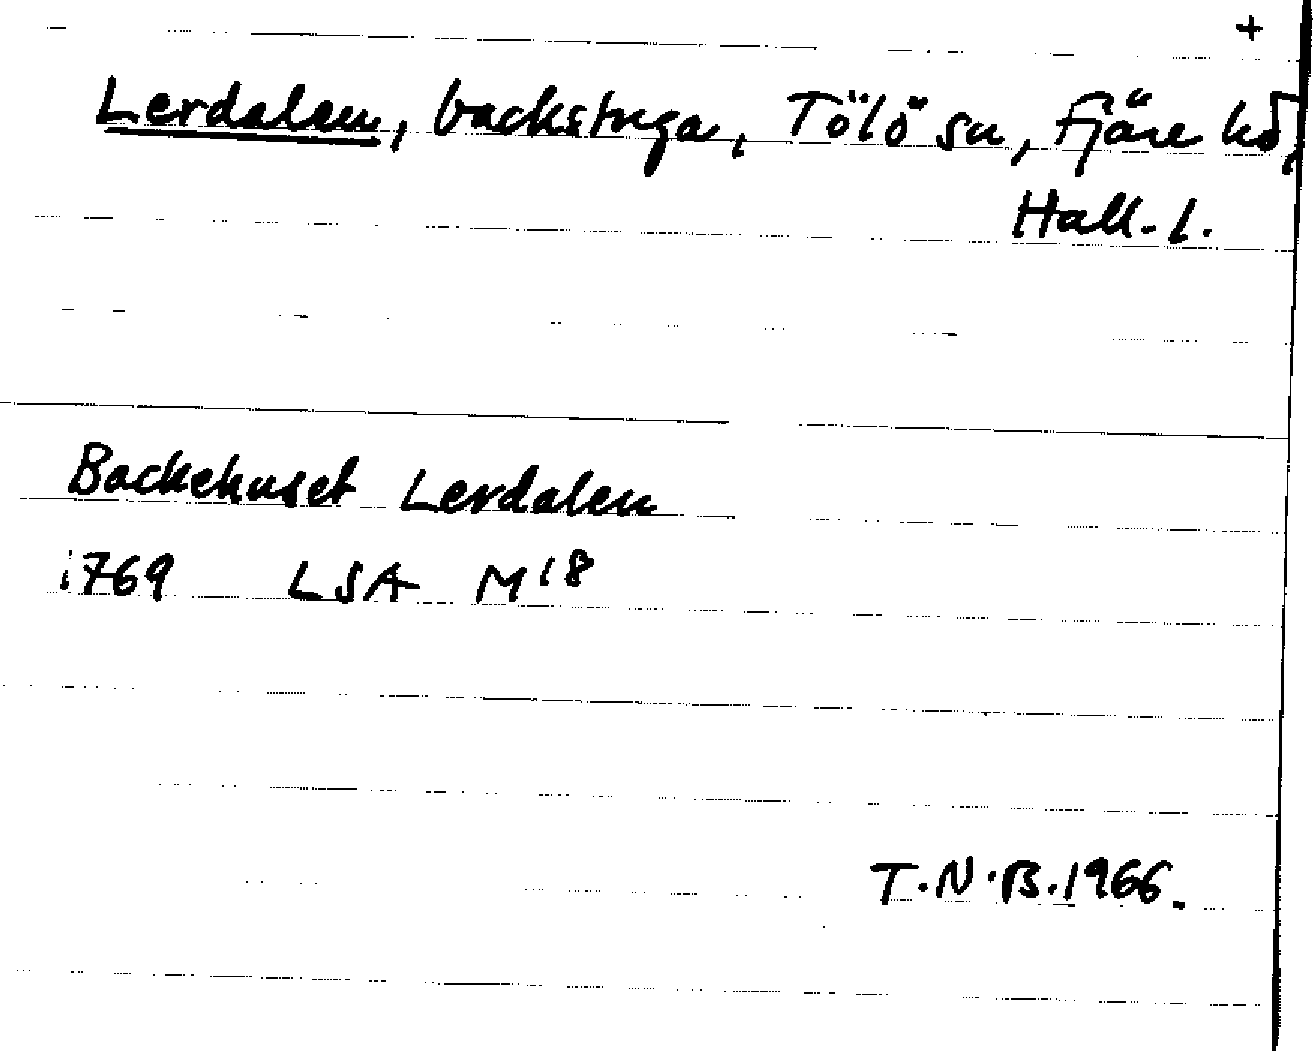 +
Lerdalen, backstuga, Tölö sn, Fjäre hd,
Hall. l.
Backehuset Lerdalen
1769 LSA M18
T.N.B. 1966.